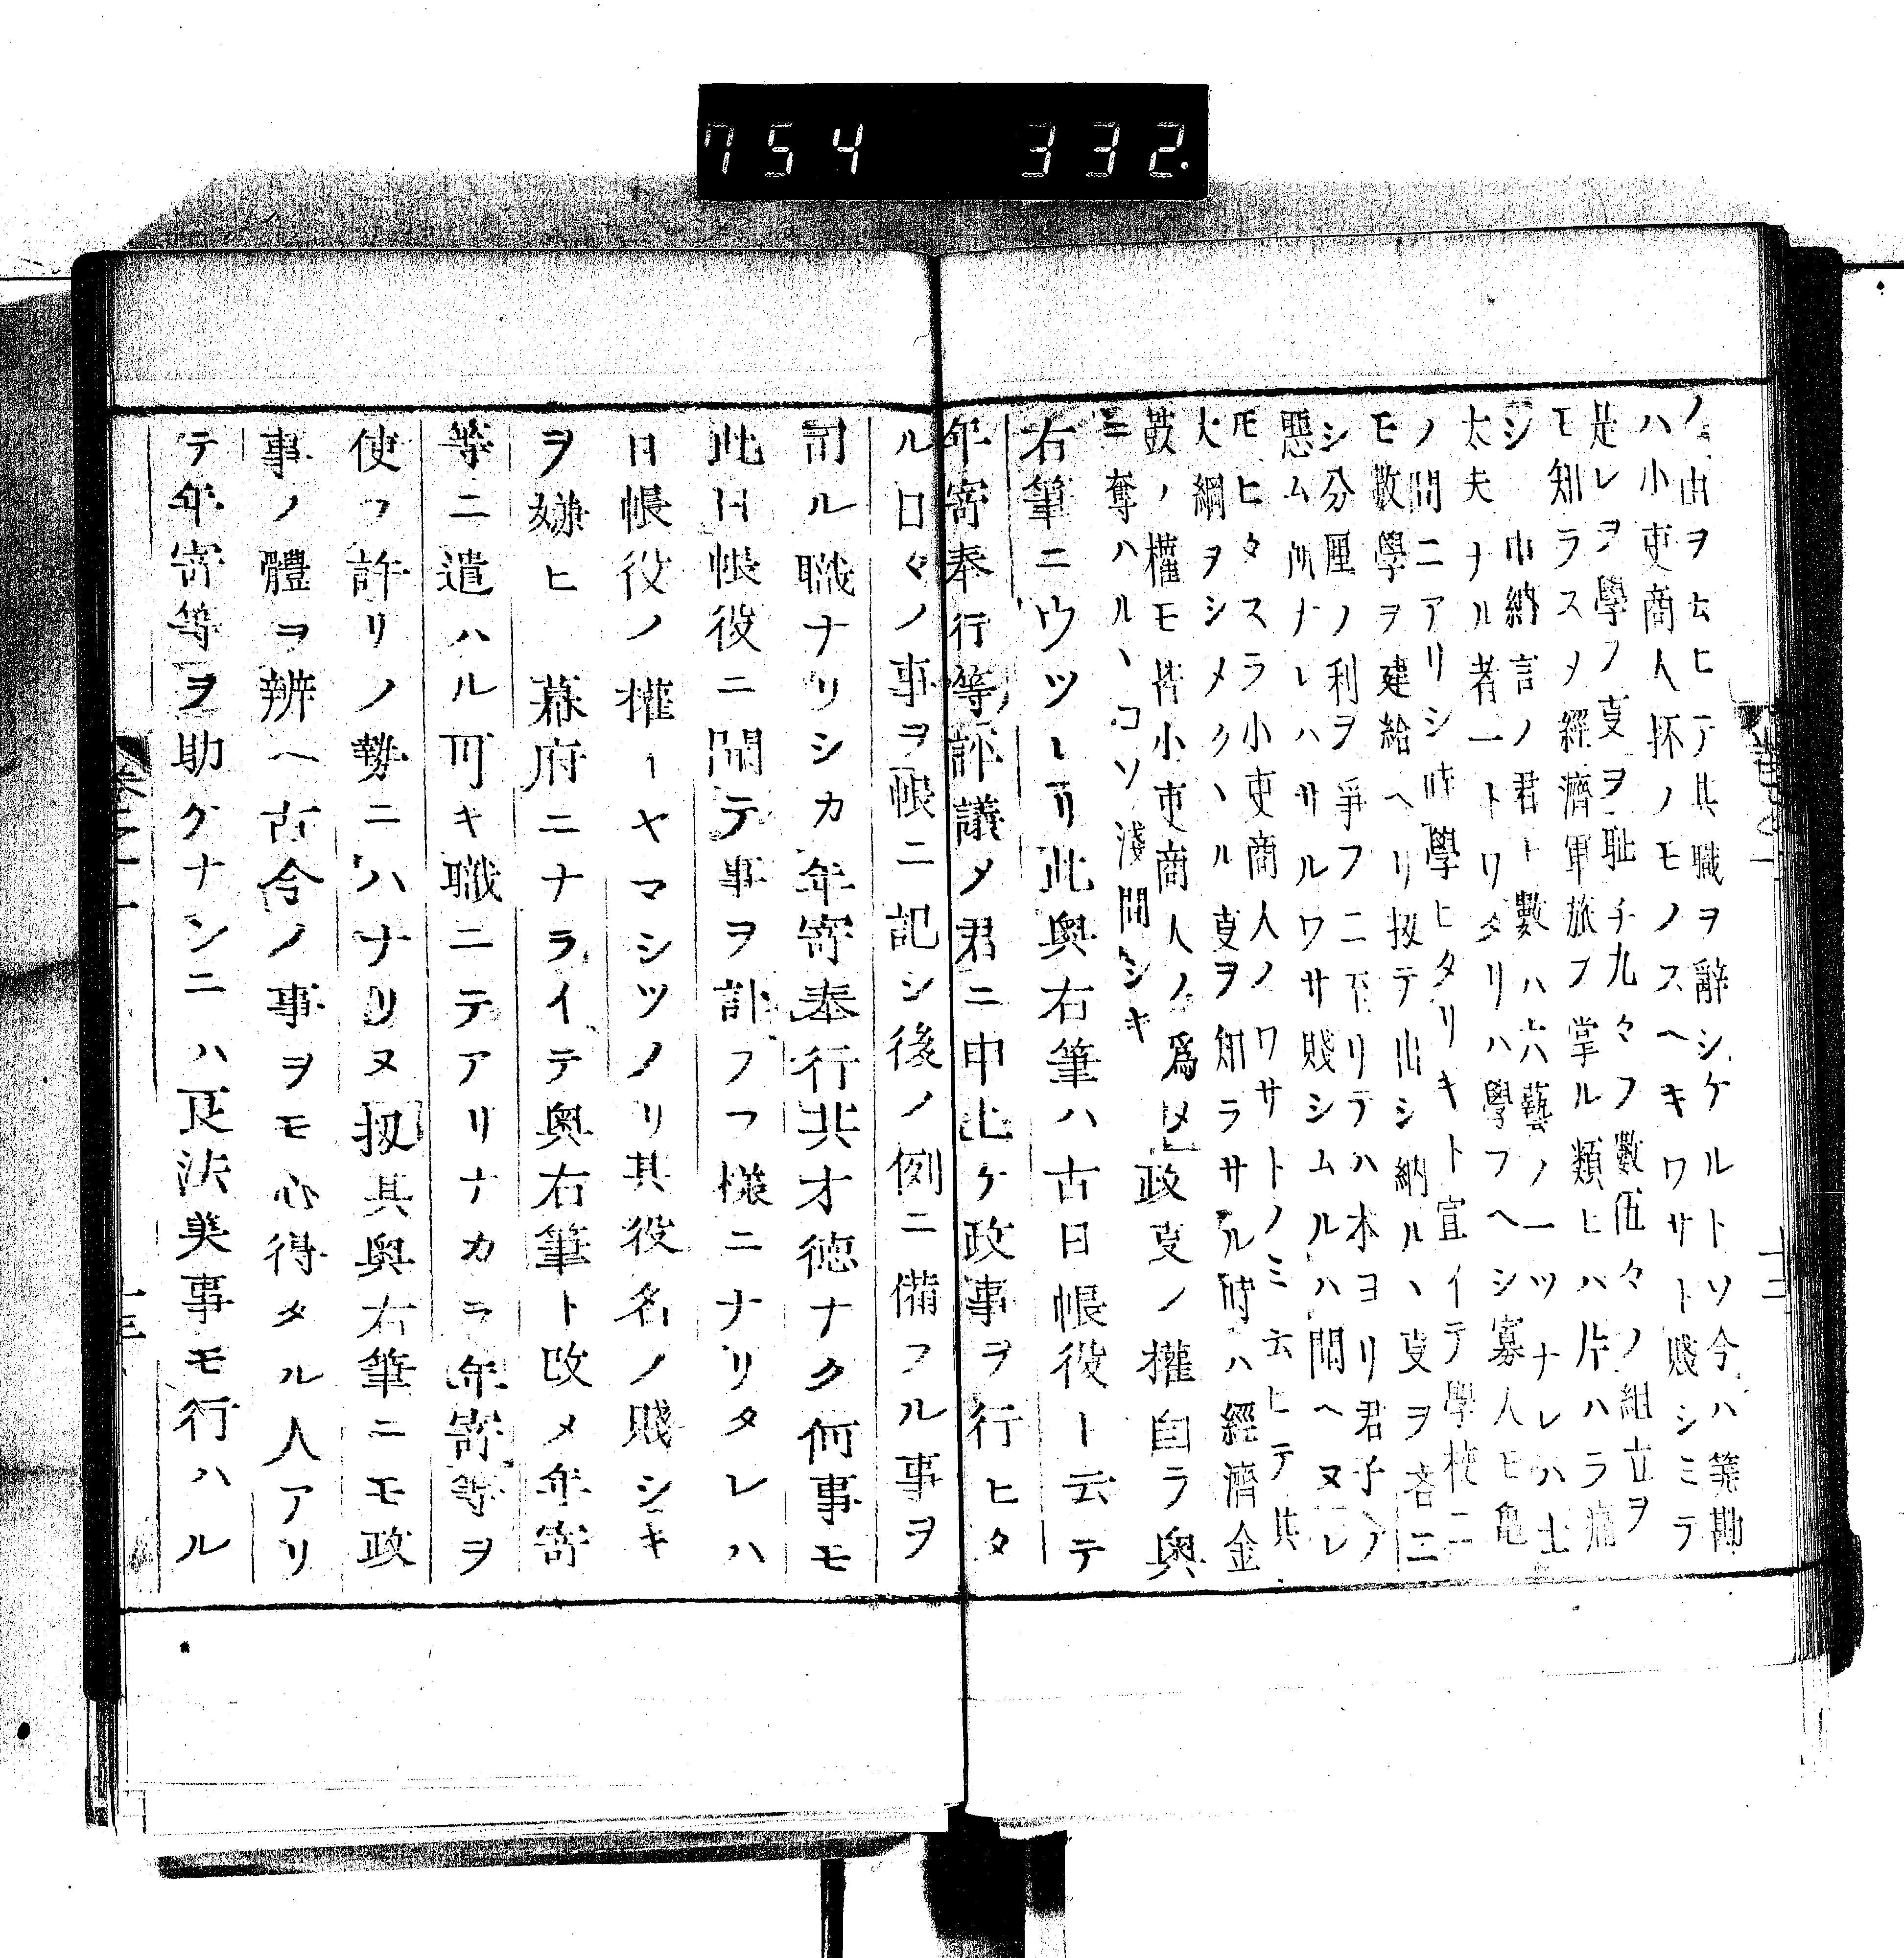 754 332
ノ由ヲ云ヒテ其職ヲ辭シケルトソ今ハ筭勘
ハ小吏商人抔ノモノスヘキワサト賤シミラ
是レヲ學ノ叓ヲ耻チ九々フ數伍々ノ組立ヲ
モ知ラスメ經濟軍旅フ掌ル類ヒハ片ハラ痛
シ 中納言ノ君ト數ハ六藝ノ一ツナレハ士
太夫ナル者一トワタリハ學フヘシ寡人モ亀
ノ間ニアリシ時學ヒタリキト宣イテ學校ニ
モ數學ヲ建給ヘリ扱テ出シ納ルヽ叓ヲ吝ニ
シ分厘ノ利ヲ爭フニ至リテハ本ヨリ君子ノ
惡ム所ナレハサルワサ賤シムルハ聞ヘヌレ
モヒタスラ小吏商人ノワサトノミ云ヒテ其
大綱ヲシメクヽル叓ヲ知ラサル時ハ經濟金
鼓ノ權モ皆小吏商人ノ爲メ
ニ奪ハルヽコソ淺間シキ
政叓ノ權自ラ奥
右筆ニウツレリ此奥右筆ハ古日帳役ト云テ
年寄奉行等評議メ君ニ申上ケ政事ヲ行ヒタ
ル日々ノ事ヲ帳ニ記シ後ノ例ニ備フル事ヲ
司ル職ナリシカ年寄奉行共才徳ナク何事モ
此日帳役ニ聞テ事ヲ計フフ様ニナリタレハ
日帳役ノ權ーヤマシツノリ其役名ノ賤シキ
ヲ嫌ヒ 幕府ニナライテ奥右筆ト改メ年寄
等ニ遣ハル可キ職ニテアリナカラ年寄等ヲ
使フ許リノ勢ニハナリヌ扱其奥右筆ニモ政
事ノ體ヲ辨ヘ古今ノ事ヲモ心得タル人アリ
テ年寄等ヲ助ケナンニハ良法美事モ行ハル
十二
十三